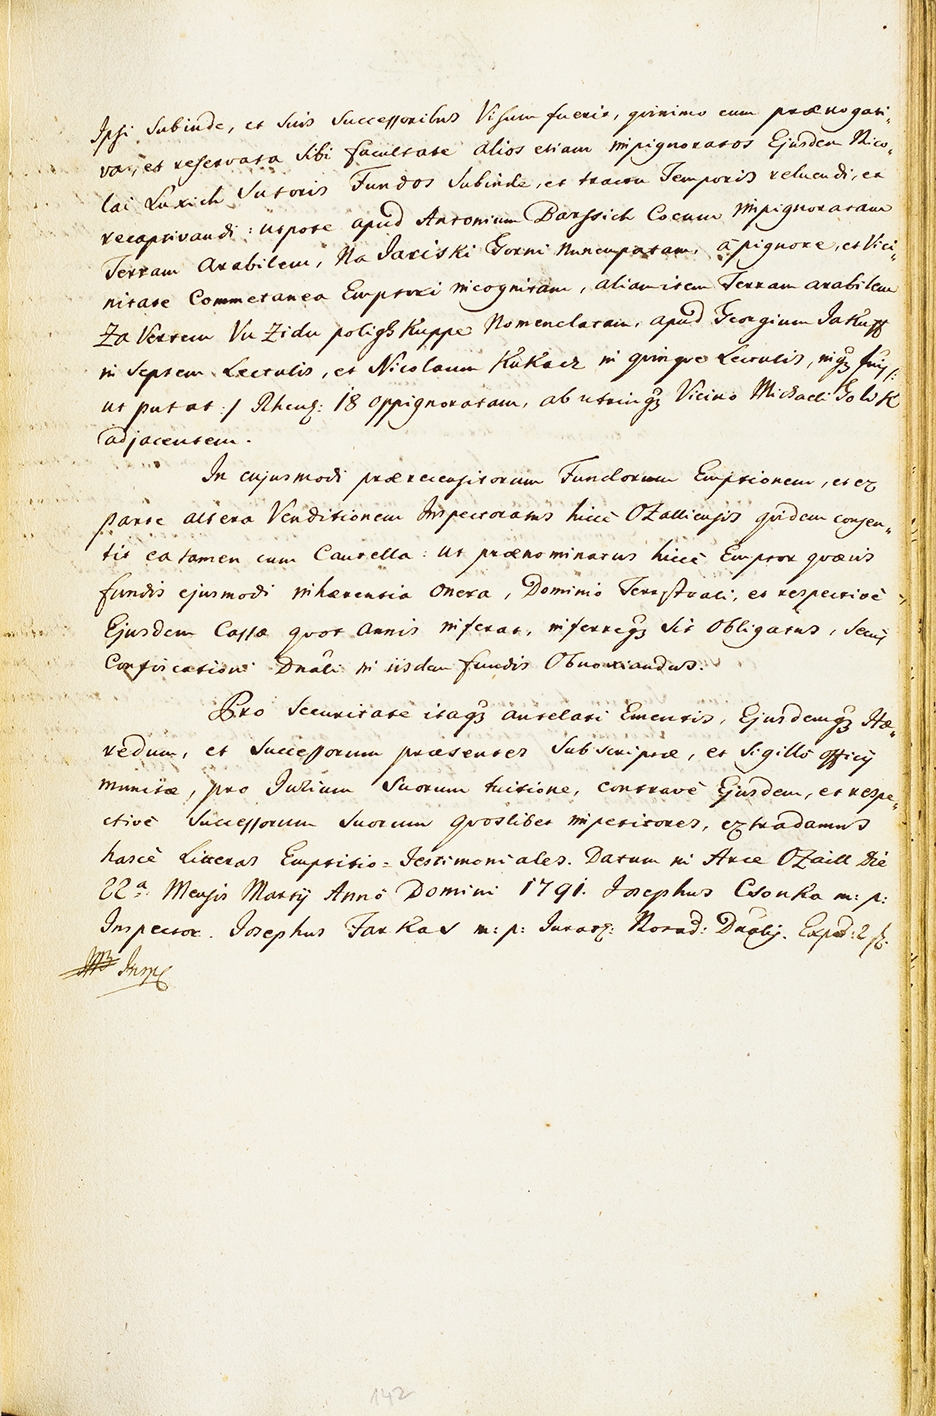 Ipsi Subinde, et Suis Successoribus Visum fuerit, quinimo cum prærogati-
va, et reservata Sibi facultate alios etiam impignoratos Ejusdem Nico-
lai Luxich Sutoris Fundos Subinde, et tractu Temporis reluendi, et
recaptivandi: utpote apud Antonium Barssich Cocum impignoratam
Terram Arabilem, Na Jariski Gorni Nuncupatam, à pignore, et Vici-
nitate Commetanea Emptori incognitam, aliam item Terram arabilem
Za Vertem Vu Zidu poligh Kuppe Nomenclatam, apud Georgium Jakuss
in Septem Lectulis, et Nicolaum Kukacz in quinque Lectulis, inqz
ut putat :/ Rhenz: 18 oppignoratam, ab utrinqz Vicino Michaeli Golik
adjacentem.
In cujusmodi prærecensitorum Fundorum Emptionem, et ex
parte altera Venditionem Inspectoratus hicce Ozalliensis quidem consen-
tit ea tamen cum Cautella: ut prænominatus hicce Emptor quævis
fundis ejusmodi inhærentia onera, Dominio Terrestrali, et respective
Ejusdem Cassæ quot annis inferat, inferreqz Sit Obligatus, Secus
Confiscationi Dnali in iisdem fundis Obnoxiandus.
Pro Securitate itaqz antelati Ementis, Ejusdemqz Hæ-
redum, et Successorum præsentes Subscriptæ, et Sigillô officij
munitæ, pro Jurium Suorum tuitione, contravê Ejusdem, et respe-
ctivê Successorum Suorum quoslibet impetitores, extradamus
hascê Litteras Emptitio-Testimoniales. Datum in Arce Ozaill Die
22ª Mensis Martij Annô Domini 1791. Josephus Csonka m: p:
Inspector. Josephus Farkas m: p: Juratz: Notad: Dnalis. Exped: 2 f.
142